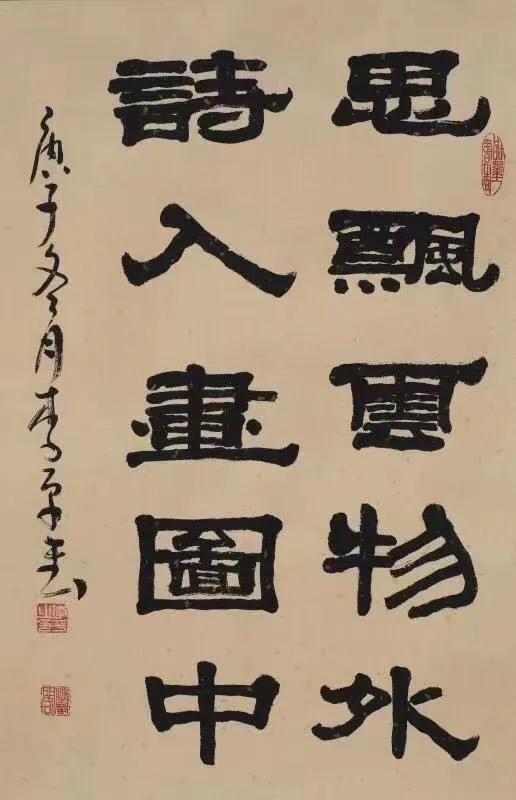 思飄雲物外
詩入畫圖中
庚子冬月李